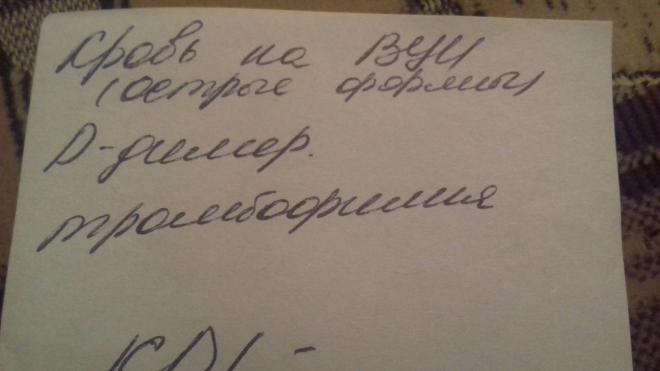 Кровь на ВУИ
(острые формы)
D-димер.
тромбофилия